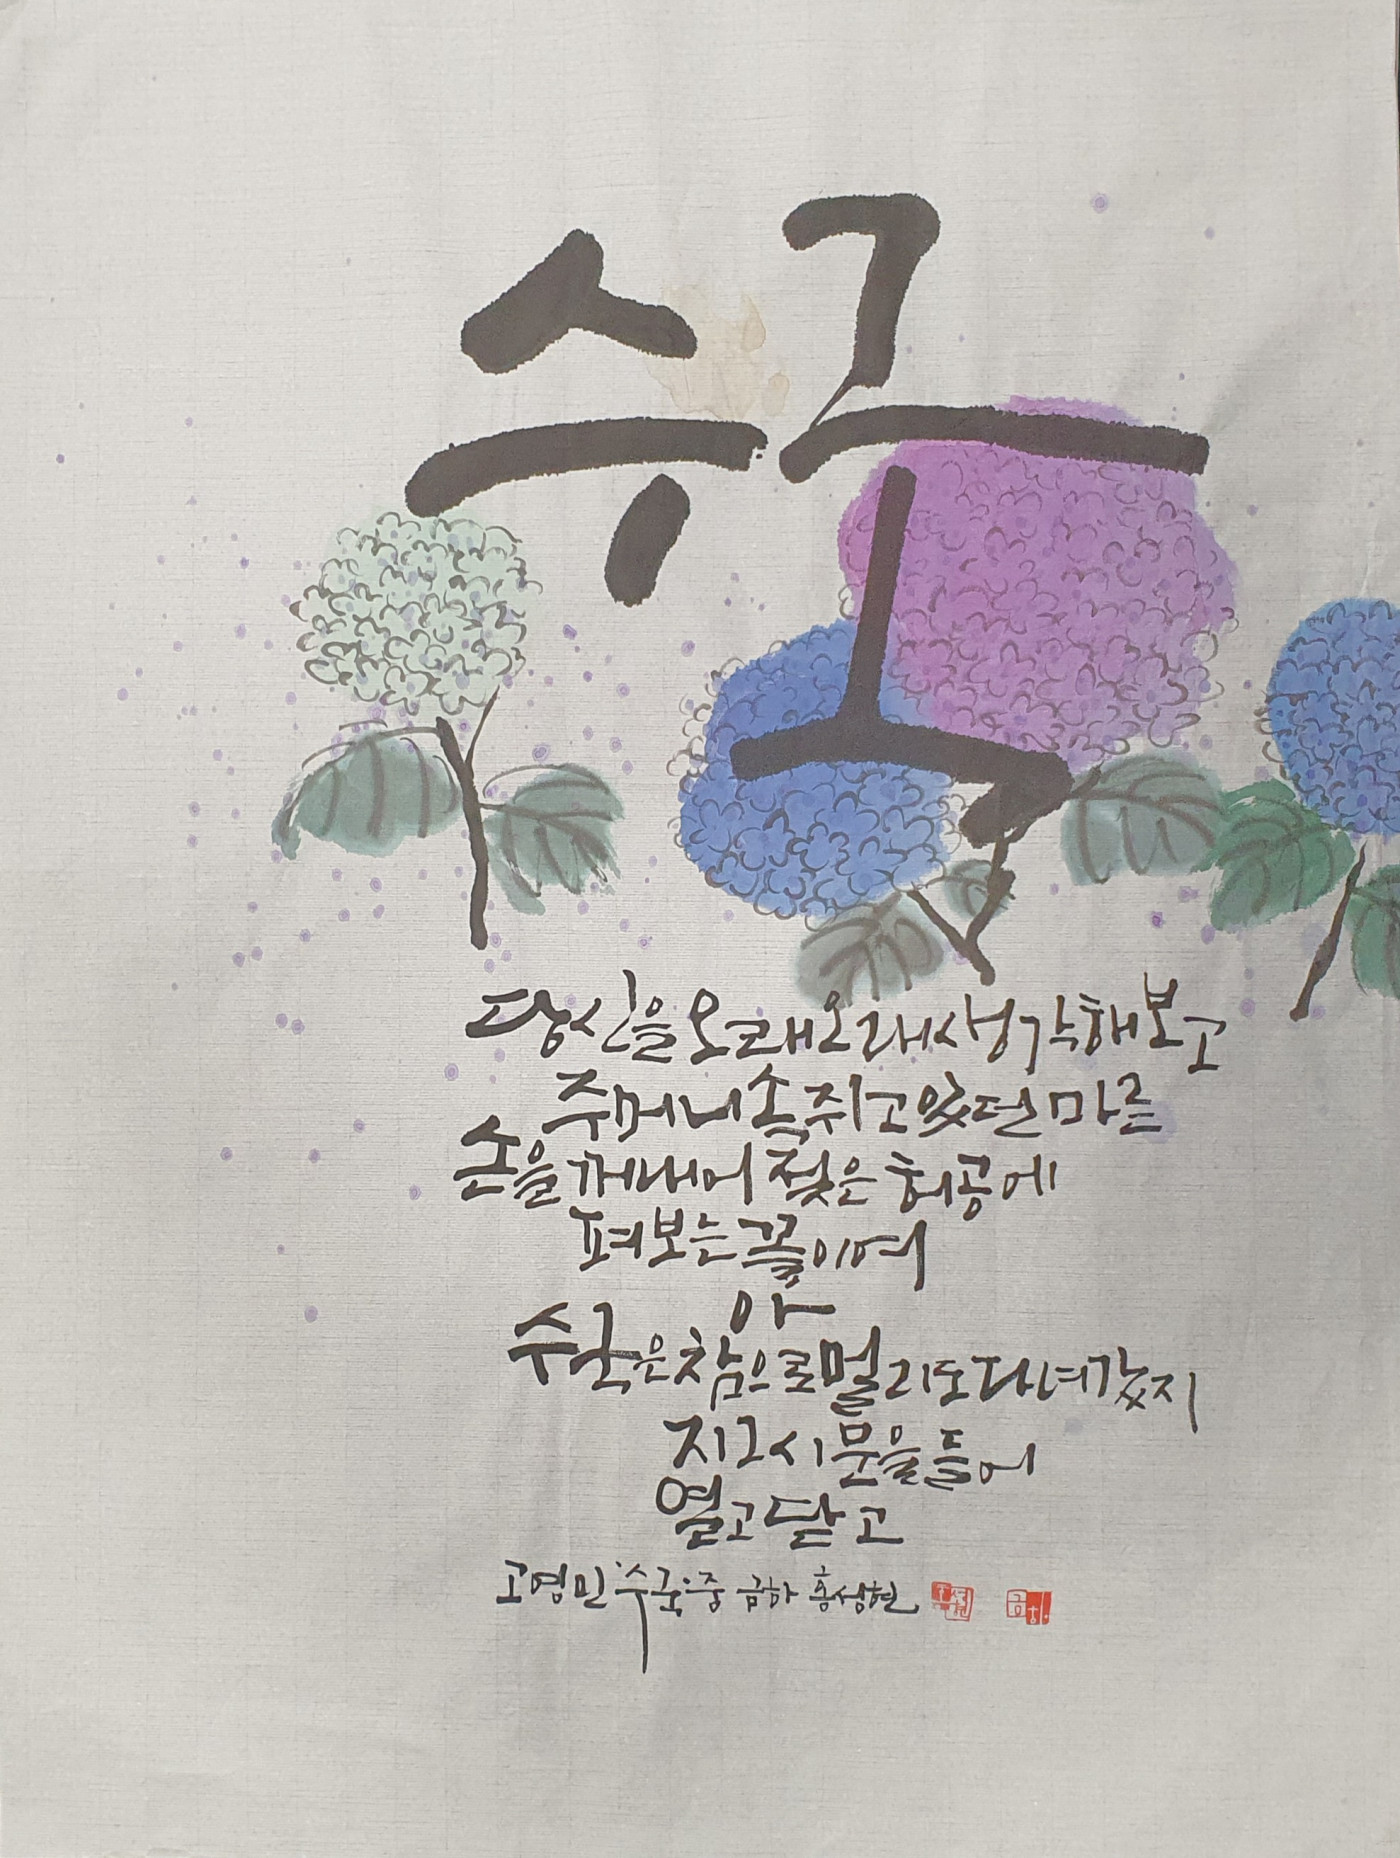 수국
당신을 오래오래 생각해보고
주머니 속 쥐고 있던 마른
손을 꺼내어 젖은 허공에
펴보는 꽃이여
아
수국은 참으로 멀리도 다녀갔지
지그시 문을 들어
열고 닫고
고영민 '수국' 중 금하 홍성현